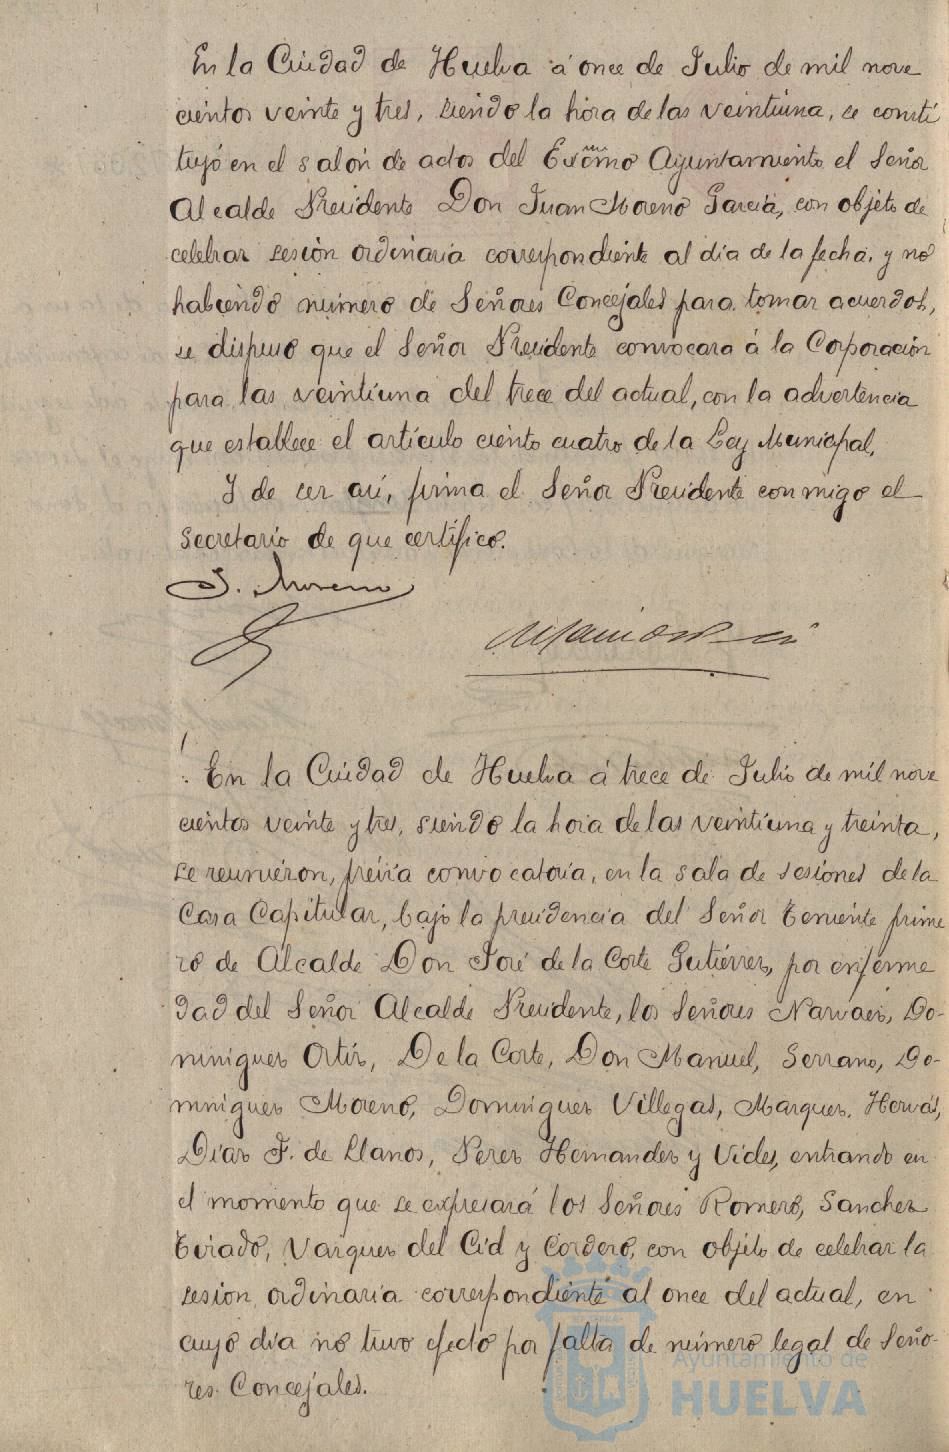 En la Ciudad de Huelva á once de Julio de mil nove
cientos veinte y tres, siendo la hora de las veintiuna, se consti
tuyó en el salón de actos del Excmo Ayuntamiento el Señor
Alcalde Presidente Don Juan Moreno García, con objeto de
celebrar sesión ordinaria correspondiente al día de la fecha, y no
habiendo número de Señores Concejales para tomar acuerdos,
se dispuso que el Señor Presidente convocara á la Corporación
para las veintiuna del trece del actual, con la advertencia
que establece el artículo ciento cuatro de la Ley Municipal.
Y de ser así, firma el Señor Presidente conmigo el
Secretario de que certifico.
J. Moreno
En la Ciudad de Huelva á trece de Julio de mil nove
cientos veinte y tres, siendo la hora de las veintiuna y treinta,
se reunieron, prévia convocatoria, en la sala de sesiones de la
Casa Capitular, bajo la presidencia del Señor Teniente prime
ro de Alcalde Don José de la Corte Gutiérrez, por enferme
dad del Señor Alcalde Presidente, los Señores Narvaez, Do-
minguez Ortiz, De la Corte, Don Manuel, Serrano, Do-
minguez Moreno, Dominguez Villegas, Marquez, Hervás,
Díaz F. de Llanos, Perez Hernandez y Vides, entrando en
el momento que se expresará los Señores Romero, Sanchez
Tirado, Vazquez del Cid y Cordero, con objeto de celebrar la
sesion ordinaria correspondiente al once del actual, en
cuyo día no tuvo efecto por falta de número legal de Seño-
res Concejales.
Ayuntamiento de
HUELVA